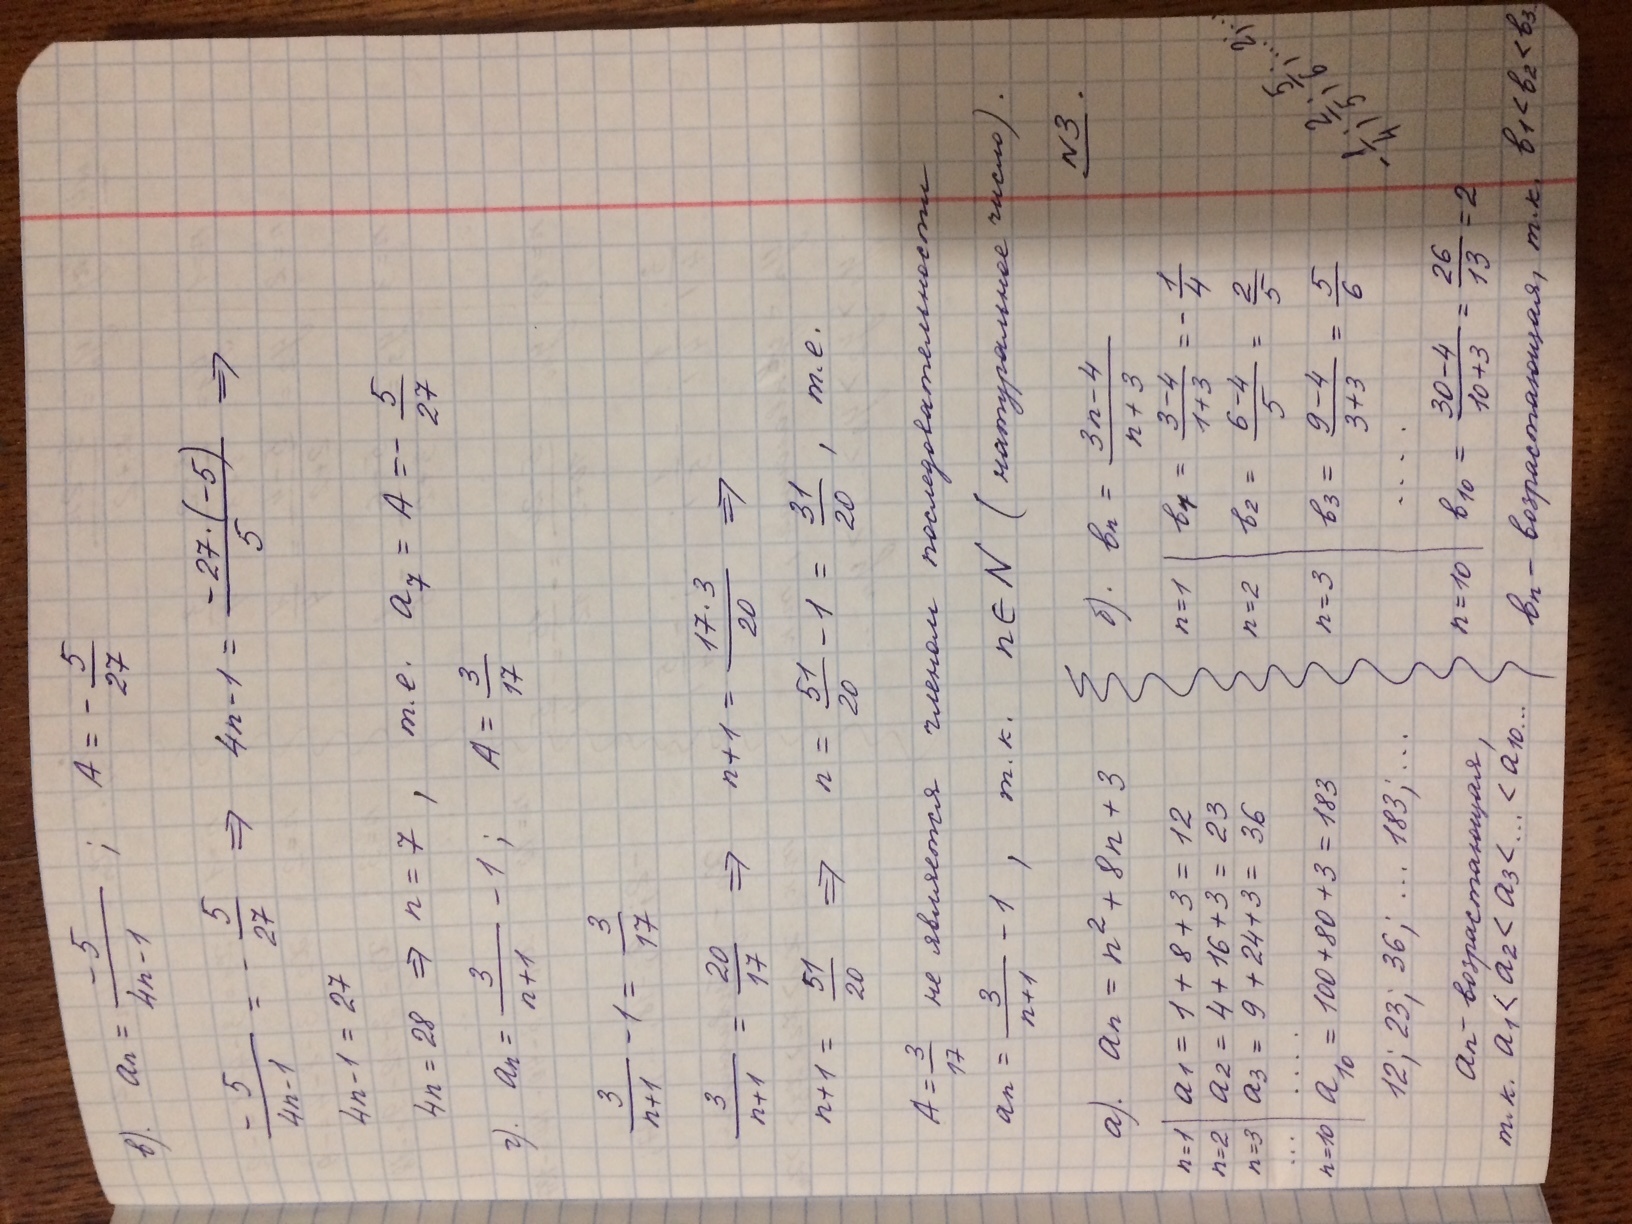 в). aₙ = -5/(4n-1) ; A = -5/27
-5/(4n-1) = -5/27 ⇒ 4n-1 = -27·(-5)/5 ⇒
4n-1 = 27
4n = 28 ⇒ n = 7 , т.е. a₇ = A = -5/27
г). aₙ = 3/(n+1) - 1 ; A = 3/17
3/(n+1) - 1 = 3/17
3/(n+1) = 20/17 ⇒ n+1 = 17·3/20 ⇒
n+1 = 51/20 ⇒ n = 51/20 - 1 = 31/20 , т.е.
A = 3/17 не является членом последовательности
aₙ = 3/(n+1) - 1 , т.к. n ∈ N (натуральное число).
N3.
а). aₙ = n² + 8n + 3
n=1 | a₁ = 1 + 8 + 3 = 12
n=2 | a₂ = 4 + 16 + 3 = 23
n=3 | a₃ = 9 + 24 + 3 = 36
... ....
n=10 | a₁₀ = 100 + 80 + 3 = 183
12; 23; 36; ... 183; ...
aₙ - возрастающая,
т.к. a₁ < a₂ < a₃ < ... < a₁₀...
б). вₙ = (3n-4)/(n+3)
n=1 | в₁ = (3-4)/(1+3) = -1/4
n=2 | в₂ = (6-4)/5 = 2/5
n=3 | в₃ = (9-4)/(3+3) = 5/6
....
n=10 | в₁₀ = (30-4)/(10+3) = 26/13 = 2
-1/4; 2/5; 5/6; ... 2; ...
вₙ - возрастающая, т.к. в₁ < в₂ < в₃